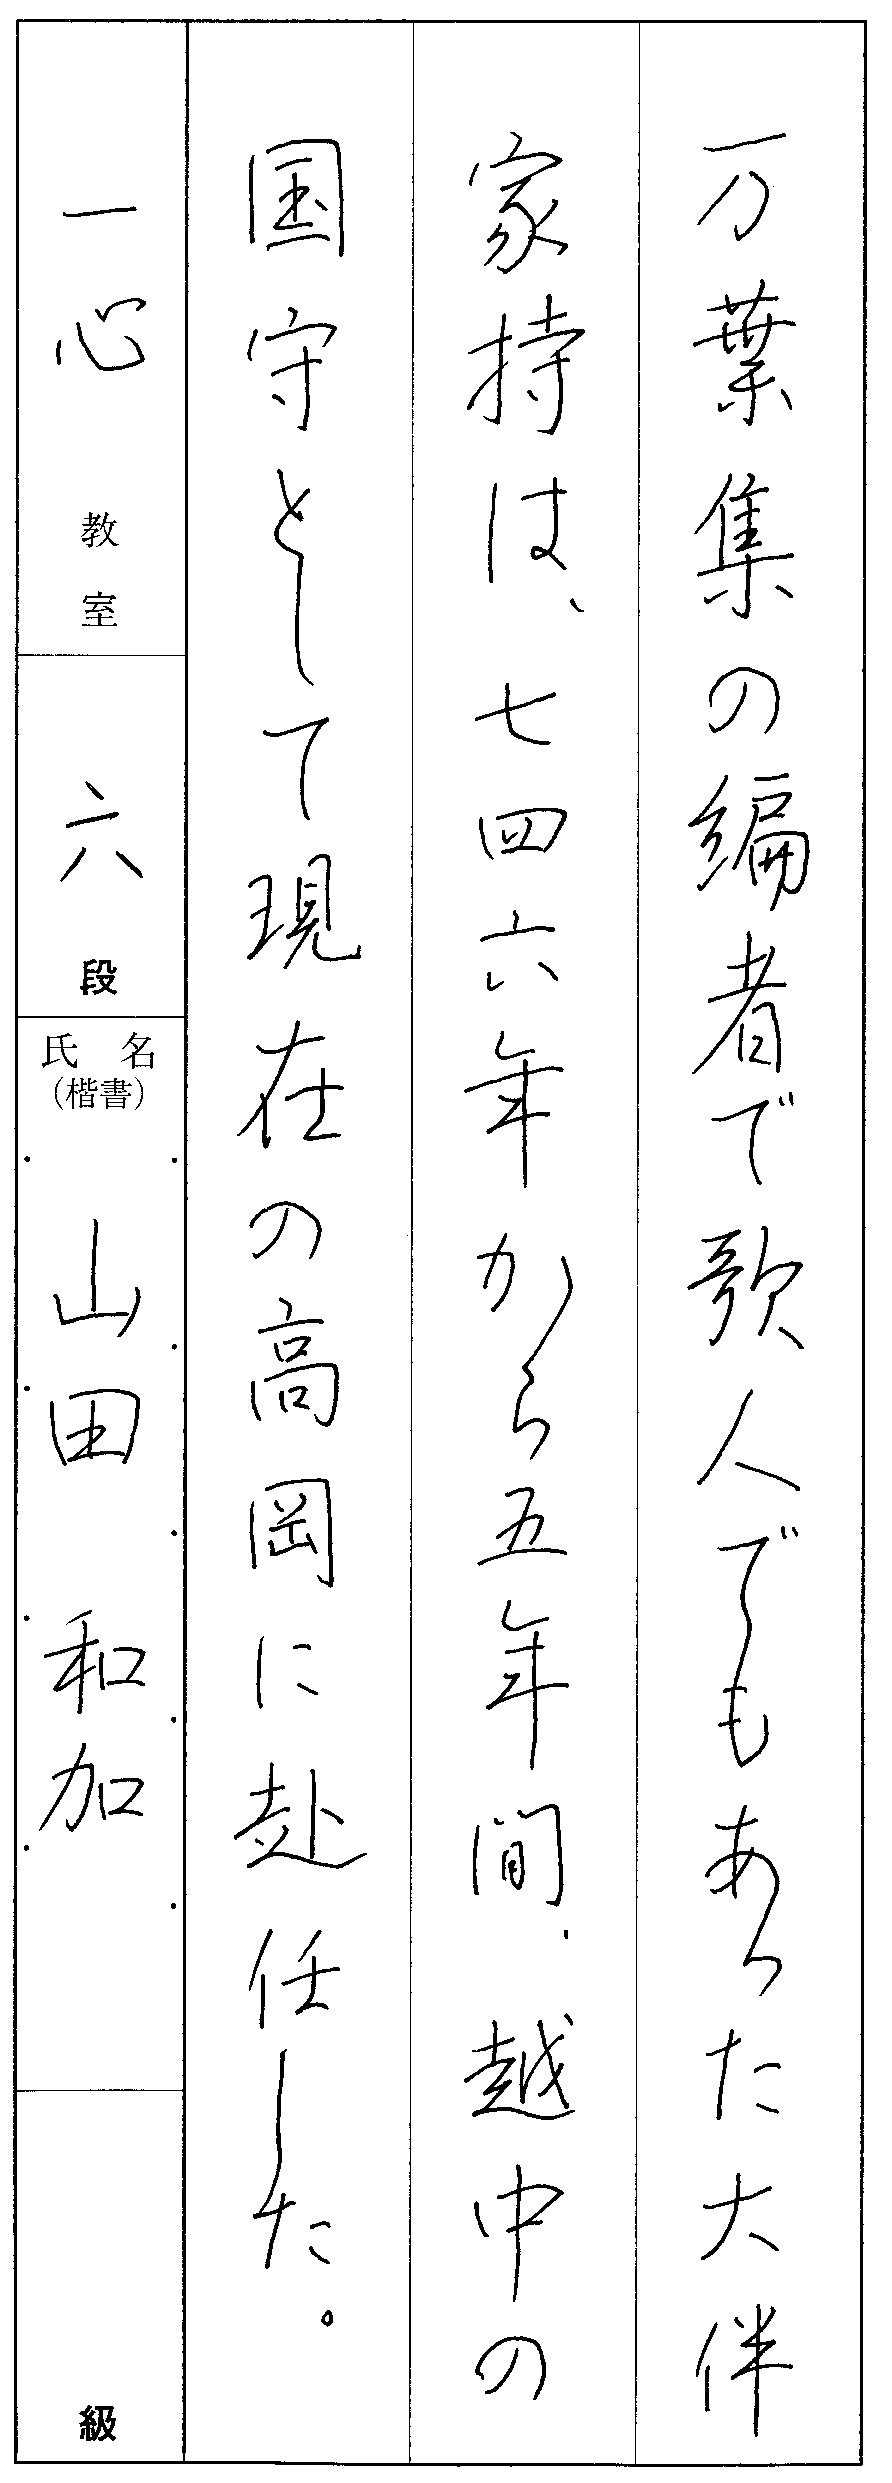 万葉集の編者で歌人でもあった大伴
家持は、七四六年から五年間、越中の
国守として現在の高岡に赴任した。
一心 教室
六 段
氏名
(楷書)
山田 和加
級